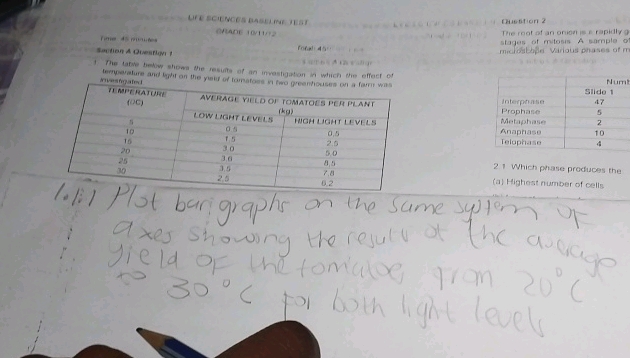 LIFE SCIENCES BASELINE TEST
GRADE 10/11/12
Time: 45 minutes
Total: 45
Section A Question 1
1. The table below shows the results of an investigation in which the effect of
temperature and light on the yield of tomatoes in two greenhouses on a farm was
investigated.
TEMPERATURE (OC) AVERAGE YIELD OF TOMATOES PER PLANT (kg)
LOW LIGHT LEVELS HIGH LIGHT LEVELS
5 0.5
10 1.5 2.5
15 3.0 5.0
20 3.6 8.5
25 3.5 7.8
30 2.5 6.2
1.1.1 Plot bar graphs on the same system of
axes showing the results of the average
yield of the tomatoes from 20°C
to 30°C for both light levels
Question 2
The root of an onion is
stages of mitosis A sample of
Various phases of m
Numb
Slide 1
Interphase 47
Prophase 5
Metaphase 2
Anaphase 10
Telophase 4
2.1 Which phase produces the
(a) Highest number of cells